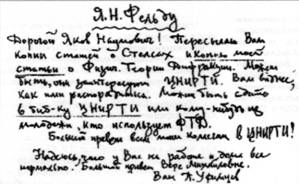 Я.Н. Фельду
Дорогой Яков Наумович! Пересылаю Вам
копии статей Стеллих и копию моей
статьи о Физич. Теории Дифракции. Может
быть, они заинтересуют ЦНИРТИ. Вам виднее,
как ими распорядиться. Может быть сдать
в биб-ку ЦНИРТИ или кому-нибудь из
молодежи, кто использует ФТД.
Большой привет всем моим коллегам в ЦНИРТИ!
Надеюсь, что у Вас на работе и дома все
нормально. Большой привет Вере
Ваш П. Уфимцев